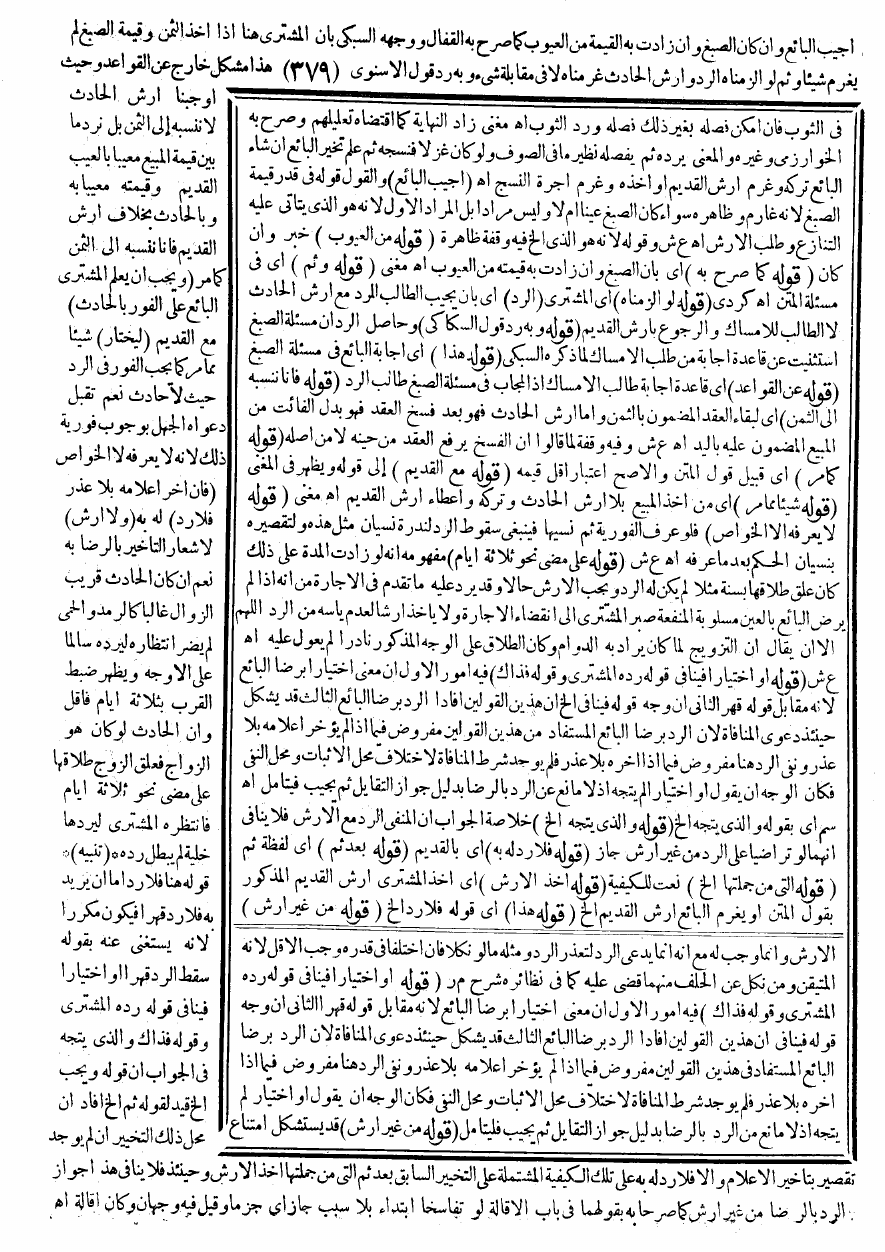 اجيب البائع وان كان الصبغ وان زادت به القيمة من العيوب كما صرح به القفال ووجهه السبكي بان المشترى هنا اذا اخذ الثمن وقيمة الصبغ لم
يغرم شيئا وثم لو الزمناه الرد وارش الحادث غرمناه لا فى مقابلة شىء وبه رد قول الاسنوى (٣٧٩) هذا مشكل خارج عن القواعد وحيث
اوجبنا ارش الحادث
لا ننسبه إلى الثمن بل نرد ما
بين قيمة المبيع معيبا بالعيب
القديم وقيمته معيبا به
وبالحادث بخلاف ارش
القديم فانا ننسبه الى الثمن
كما مر (ويجب ان يعلم المشترى
البائع على الفور بالحادث)
مع القديم (ليختار) شيئا
مما مر كما يجب الفور فى الرد
حيث لا حادث نعم تقبل
دعواه الجهل بوجوب فورية
ذلك لانه لا يعرفه الا الخواص
(فان اخر اعلامه بلا عذر
فلا رد) له به (ولا ارش)
لاشعار التاخير بالرضا به
نعم ان كان الحادث قريب
الزوال غالبا كالرمد والحمى
لم يضر انتظاره ليرده سالما
على الاوجه ويظهر ضبط
القرب بثلاثة ايام فاقل
وان الحادث لو كان هو
الزواج فعلق الزوج طلاقها
على مضى نحو ثلاثة ايام
فانتظره المشترى ليردها
خلية لم يبطل رده *(تنبيه)*
قوله هنا فلا رد اما ان يريد
به فلا رد قهرا فيكون مكررا
لانه يستغنى عنه بقوله
سقط الرد قهرا او اختيارا
فينافى قوله رده المشترى
وقوله فذاك والذى يتجه
فى الجواب ان قوله ويجب
الخ قيد لقوله ثم الخ افاد ان
محل ذلك التخيير ان لم يوجد
تقصير بتاخير الاعلام والا فلا رد له به على تلك الكيفية المشتملة على التخيير السابق بعد ثم التى من جملتها اخذ الارش وحينئذ فلا ينافى هذا جواز
الرد بالرضا من غير ارش كما صرحا به بقولهما فى باب الاقالة لو تفاسخا ابتداء بلا سبب جاز اى جزما وقيل فيه وجهان وكان اقالة اه
فى الثوب فان امكن فصله بغير ذلك فصله ورد الثوب اه مغنى زاد النهاية كما اقتضاه تعليلهم وصرح به
الخوارزمى وغيره والمعنى يرده ثم يفصله نظير ما فى الصوف ولو كان غزلا فنسجه ثم علم تخير البائع ان شاء
البائع تركه وغرم ارش القديم او اخذه وغرم اجرة النسج اه (اجيب البائع) والقول قوله فى قدر قيمة
الصبغ لانه غارم وظاهره سواء كان الصبغ عينا ام لا وليس مرادا بل المراد الاول لانه هو الذى يتاتى عليه
التنازع وطلب الارش اه ع ش وقوله لانه هو الذى الخ فيه وقفة ظاهرة (قوله من العيوب) خبر وان
كان (قوله كما صرح به) اى بان الصبغ وان زادت به قيمته من العيوب اه مغنى (قوله وثم) اى فى
مسئلة المتن اه كردى (قوله لو الزمناه) اى المشترى (الرد) اى بان يجيب الطالب للرد مع ارش الحادث
لا الطالب للامساك والرجوع بارش القديم (قوله وبه رد قول السكاكى) وحاصل الرد ان مسئلة الصبغ
استثنيت عن قاعدة اجابة من طلب الامساك لما ذكره السبكى (قوله هذا) اى اجابة البائع فى مسئلة الصبغ
(قوله عن القواعد) اى قاعدة اجابة طالب الامساك اذ المجاب فى مسئلة الصبغ طالب الرد (قوله فانا ننسبه
الى الثمن) اى لبقاء العقد المضمون بالثمن واما ارش الحادث فهو بعد فسخ العقد فهو بدل الفائت من
المبيع المضمون عليه باليد اه ع ش وفيه وقفة لما قالوا ان الفسخ يرفع العقد من حينه لا من اصله (قوله
كما مر) اى قبيل قول المتن والاصح اعتبار اقل قيمه (قوله مع القديم) إلى قوله ويظهر فى المغنى
(قوله شيئا مما مر) اى من اخذ المبيع بلا ارش الحادث وتركه واعطاء ارش القديم اه مغنى (قوله
لا يعرفه الا الخواص) فلو عرف الفورية ثم نسيها فينبغى سقوط الرد لندرة نسيان مثل هذه ولتقصيره
بنسيان الحكم بعد ما عرفه اه ع ش (قوله على مضى نحو ثلاثة ايام) مفهومه انه لو زادت المدة على ذلك
كان علق طلاقها بسنة مثلا لم يكن له الرد ويجب الارش حالا وقد يرد عليه ما تقدم فى الاجارة من انه اذا لم
يرض البائع بالعين مسلوبة المنفعة صبر المشترى الى انقضاء الاجارة ولا ياخذ ارشا لعدم ياسه من الرد اللهم
الا ان يقال ان التزويج لما كان يراد به الدوام وكان الطلاق على الوجه المذكور نادرا لم يعول عليه اه
ع ش (قوله او اختيارا فينافى قوله رده المشترى وقوله فذاك) فيه امور الاول ان معنى اختيارا برضا البائع
لانه مقابل قوله قهرا الثانى ان وجه قوله فينافى الخ ان هذين القولين افادا الرد برضا البائع الثالث قد يشكل
حينئذ دعوى المنافاة لان الرد برضا البائع المستفاد من هذين القولين مفروض فيما اذا لم يؤخر اعلامه بلا
عذر ونفى الرد هنا مفروض فيما اذا اخره بلا عذر فلم يوجد شرط المنافاة لاختلاف محل الاثبات ومحل النفى
فكان الوجه ان يقول او اختيارا لم يتجه اذ لا مانع عن الرد بالرضا بدليل جواز التقايل ثم يجيب فليتامل اه
سم اى بقوله والذى يتجه الخ (قوله والذى يتجه الخ) خلاصة الجواب ان المنفى الرد مع الارش فلا ينافى
انهما لو تراضيا على الرد من غير ارش جاز (قوله فلا رد له به) اى بالقديم (قوله بعد ثم) اى لفظة ثم
(قوله التى من جملتها الخ) نعت للكيفية (قوله اخذ الارش) اى اخذ المشترى ارش القديم المذكور
بقول المتن او يغرم البائع ارش القديم الخ (قوله هذا) اى قوله فلا رد الخ (قوله من غير ارش)
الارش وانما وجب له مع انه انما يدعى الرد لتعذر الرد ومثله ما لو نكلا فان اختلفا فى قدره وجب الاقل لانه
المتيقن ومن نكل عن الحلف منهما قضى عليه كما فى نظائره شرح م ر (قوله او اختيارا فينافى قوله رده
المشترى وقوله فذاك) فيه امور الاول ان معنى اختيارا برضا البائع لانه مقابل قوله قهرا الثانى ان وجه
قوله فينافى ان هذين القولين افادا الرد برضا البائع الثالث قد يشكل حينئذ دعوى المنافاة لان الرد برضا
البائع المستفاد فى هذين القولين مفروض فيما اذا لم يؤخر اعلامه بلا عذر ونفى الرد هنا مفروض فيما اذا
اخره بلا عذر فلم يوجد شرط المنافاة لاختلاف محل الاثبات ومحل النفى فكان الوجه ان يقول او اختيارا لم
يتجه اذ لا مانع من الرد بالرضا بدليل جواز التقايل ثم يجيب فليتامل (قوله من غير ارش) قد يستشكل امتناع